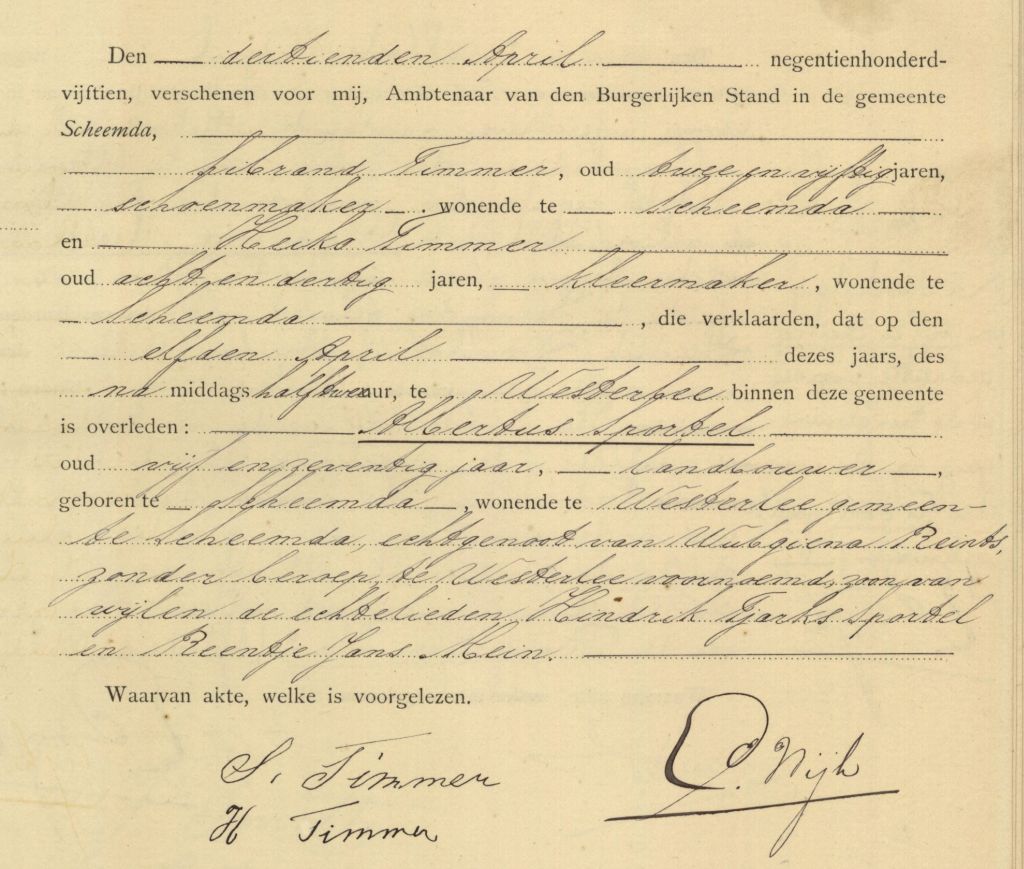 Den dertienden April negentienhonderd-
vijftien, verschenen voor mij, Ambtenaar van den Burgerlijken Stand in de gemeente
Scheemda,
Sibrand Timmer, oud twee en vijftig jaren,
schoenmaker, wonende te Scheemda
en Heiko Timmer
oud acht en dertig jaren, kleermaker, wonende te
Scheemda, die verklaarden, dat op den
elfden April dezes jaars, des
na middags half twee uur, te Westerlee binnen deze gemeente
is overleden: Albertus Sportel
oud vijf en zeventig jaar, landbouwer,
geboren te Scheemda, wonende te Westerlee gemeen-
te Scheemda, echtgenoot van Wubgiena Reints,
zonder beroep, te Westerlee voornoemd, zoon van
wijlen de echtelieden Hindrik Tjarks Sportel
en Reentje Jans Mein.
Waarvan akte, welke is voorgelezen.
S. Timmer
H Timmer
Nijh